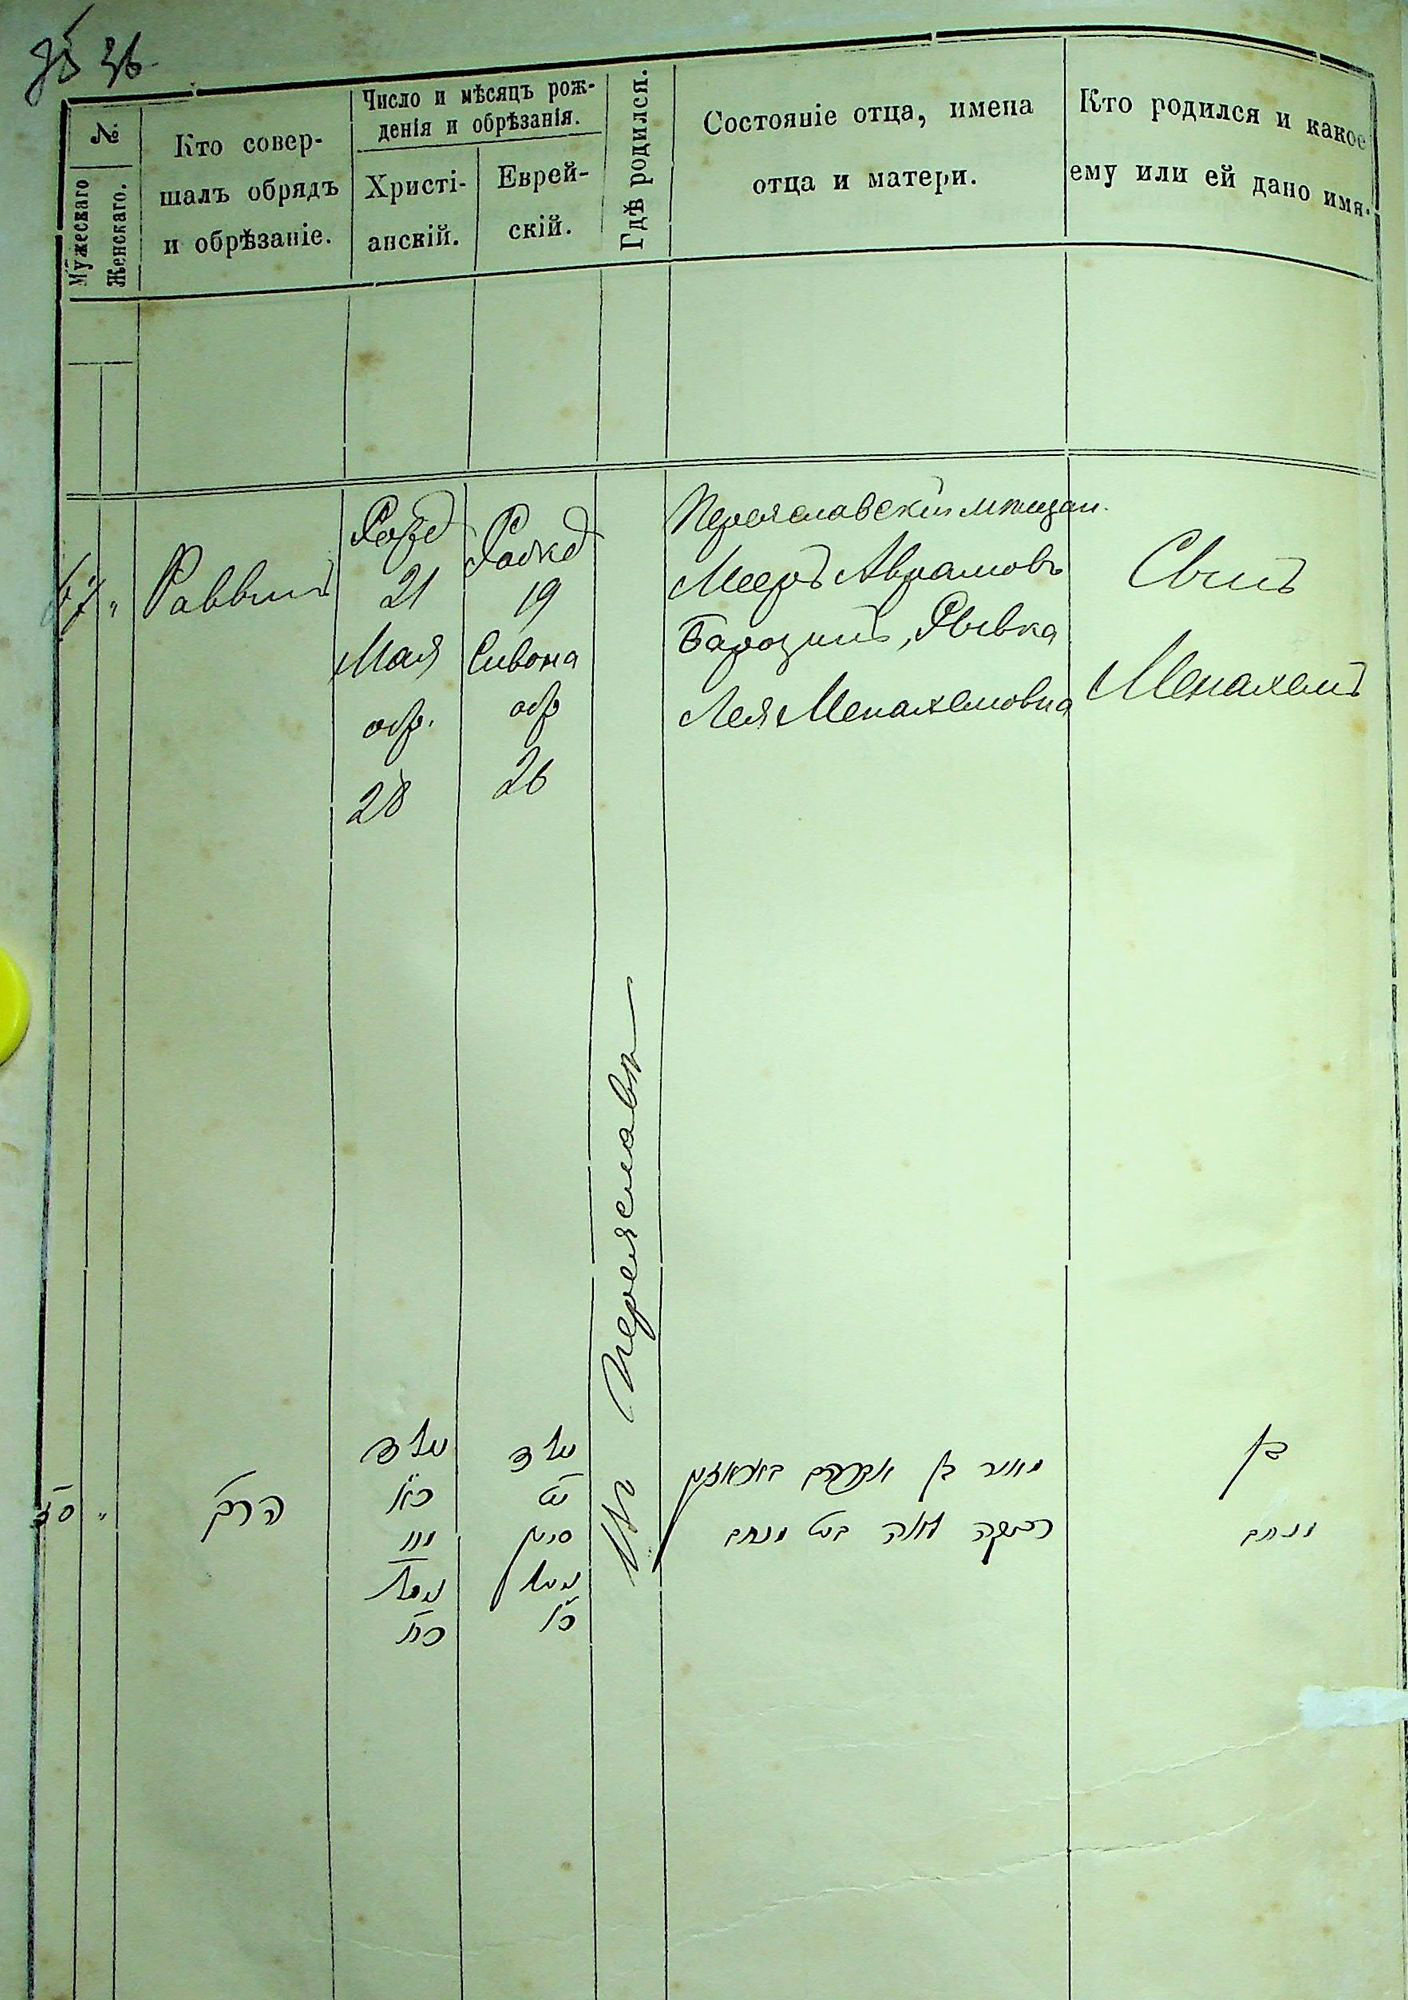 36
№.
Мужескаго
Женскаго.
Кто совер-
шалъ обрядъ
и обрѣзаніе.
Число и мѣсяцъ рож-
денія и обрѣзанія.
Христі-
анскій.
Еврей-
скій.
Гдѣ родился.
Состояніе отца, имена
отца и матери.
Кто родился и какое
ему или ей дано имя.
67 "
Раввинъ
21
Мая
обр.
28
19
Сивона
обр
26
Въ Переяславѣ
Переяславскій мѣщан.
Мееръ Аврамовъ
Рывка
Лея Менахемовна
Сынъ
Менахемъ
סז "
הרב
נולד
כא
מיי
נימול
כח
נולד
יט
סיון
נימול
כו
מאיר בן אברהם
רבקה לאה בת מנחם
בן
מנחם